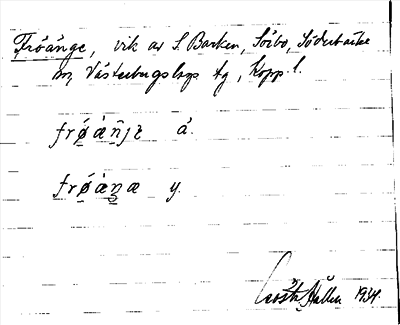 Fröänge, vik av S. Barken, Söbo, Söderbärke
sn, Västerbergslags tg, Kopp. l.
frǿ̣ὰn̂jɛ ä.
frǿ̣ὰŋæ y.
Gösta Hallén 1934.